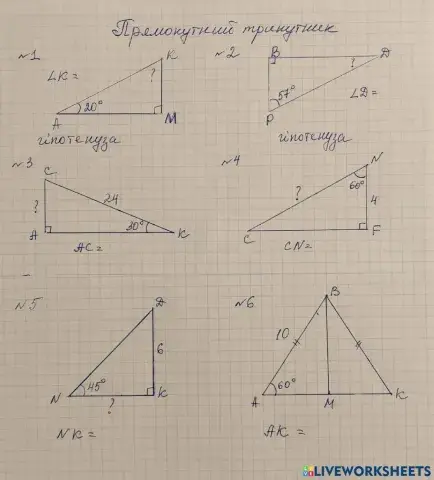 Прямокутний трикутник
№1
∠K =
K
?
20°
A
M
гіпотенуза
№2
B
D
?
57°
∠D =
P
гіпотенуза
№3
C
?
24
30°
A
K
AC =
№4
N
?
60°
4
C
F
CN =
№5
D
6
45°
N
K
?
NK =
№6
B
10
60°
A
M
K
AK =
LIVEWORKSHEETS